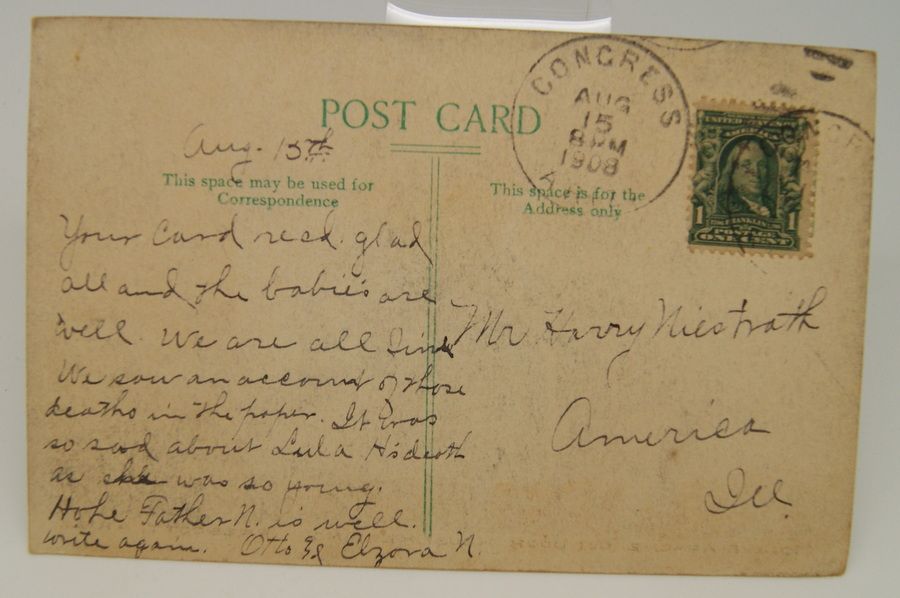 POST CARD
CONGRESS
AUG
15
8 PM
1908
A
UNITED STATES
SERIES 1902
1 FRANKLIN 1
POSTAGE
ONE CENT
Aug. 15th
This space may be used for
Correspondence
This space is for the
Address only
Your Card recd. glad
all and the babies are
well. We are all fine
We saw an account of those
deaths in the paper. It was
so sad about Lula H's death
as she was so young.
Hope Father N. is well.
write again. Otto & Elzora N.
Mr Harry Niestrath
America
Ill.